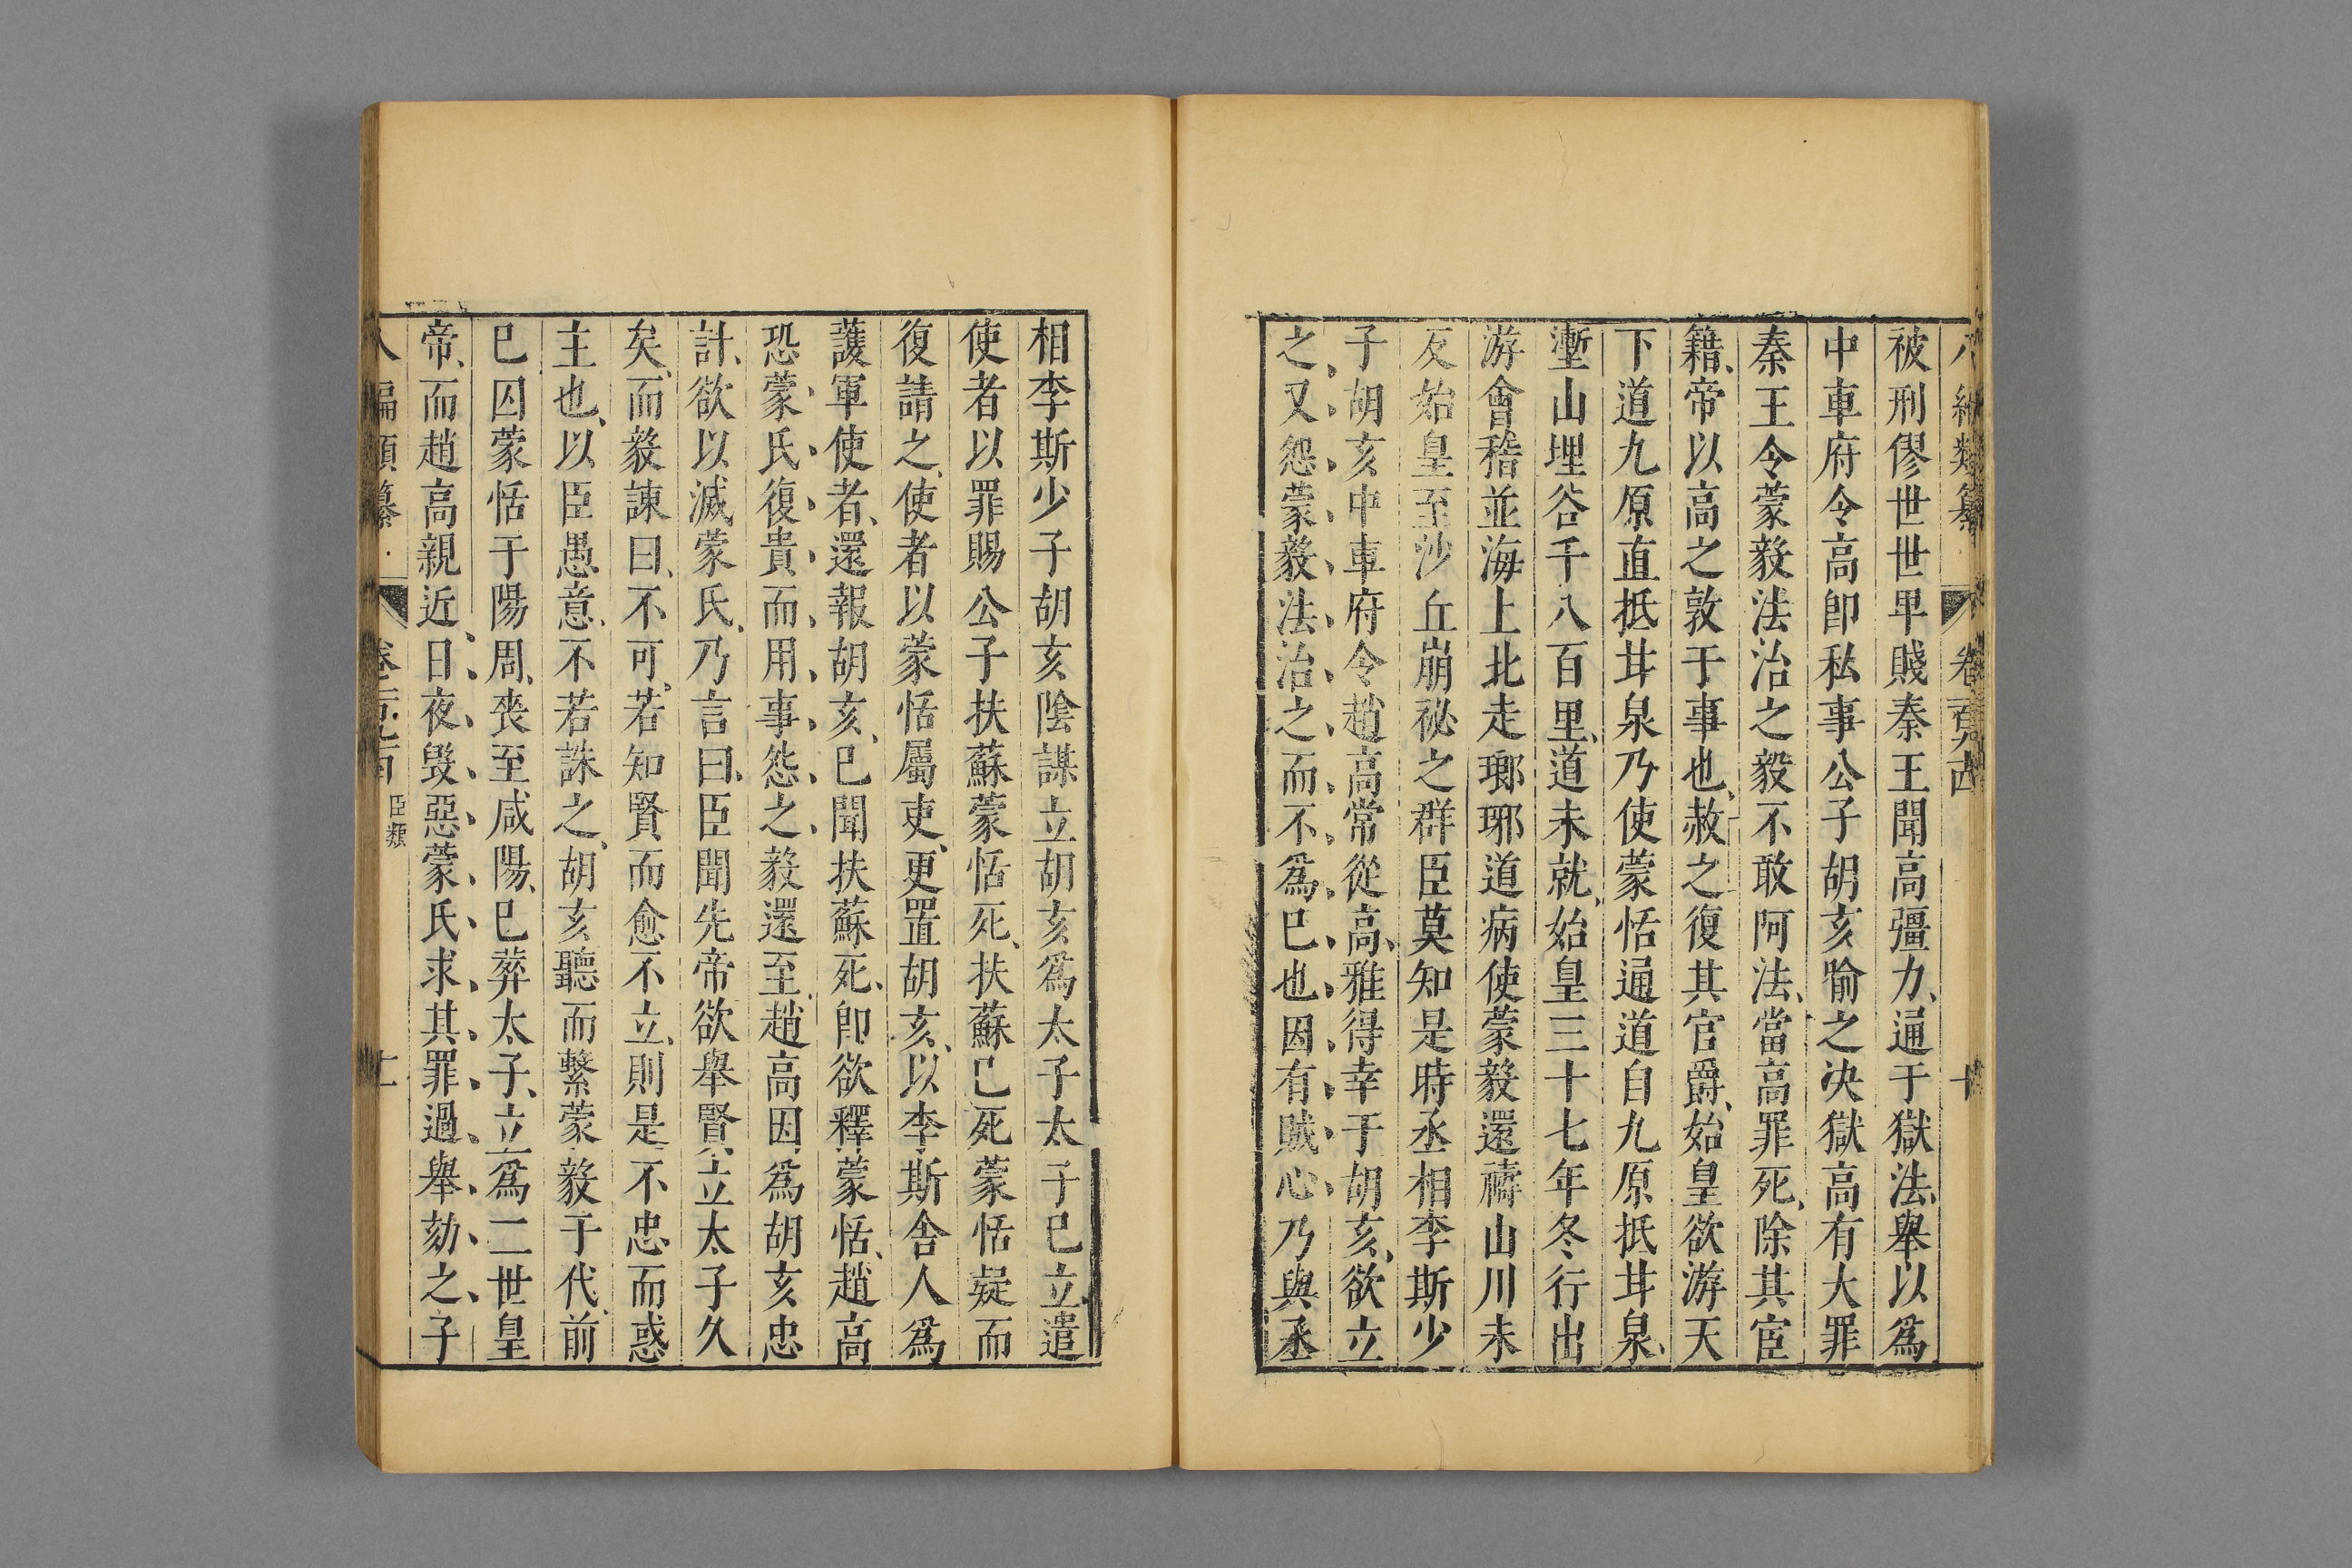 被刑僇世世卑賤秦王聞高彊力通于獄法舉以爲
中車府令高卽私事公子胡亥喻之决獄高有大罪
秦王令蒙毅法治之毅不敢阿法當高罪死除其宦
籍帝以高之敦于事也赦之復其官爵始皇欲游天
下道九原直抵甘泉乃使蒙恬通道自九原抵甘泉
塹山堙谷千八百里道未就始皇三十七年冬行出
游會稽並海上北走瑯琊道病使蒙毅還禱山川未
反始皇至沙丘崩祕之群臣莫知是時丞相李斯少
子胡亥中車府令趙高常從高雅得幸于胡亥欲立
之又怨蒙毅法治之而不爲已也因有賊心乃與丞
相李斯少子胡亥陰謀立胡亥爲太子太子已立遣
使者以罪賜公子扶蘇蒙恬死扶蘇已死蒙恬疑而
復請之使者以蒙恬屬吏更置胡亥以李斯舍人爲
護軍使者還報胡亥已聞扶蘇死卽欲釋蒙恬趙高
恐蒙氏復貴而用事怨之毅還至趙高因爲胡亥忠
計欲以滅蒙氏乃言曰臣聞先帝欲舉賢立太子久
矣而毅諫曰不可若知賢而愈不立則是不忠而惑
主也以臣愚意不若誅之胡亥聽而繫蒙毅于代前
已囚蒙恬于陽周喪至咸陽已葬太子立爲二世皇
帝而趙高親近日夜毀惡蒙氏求其罪過舉劾之子
臣類